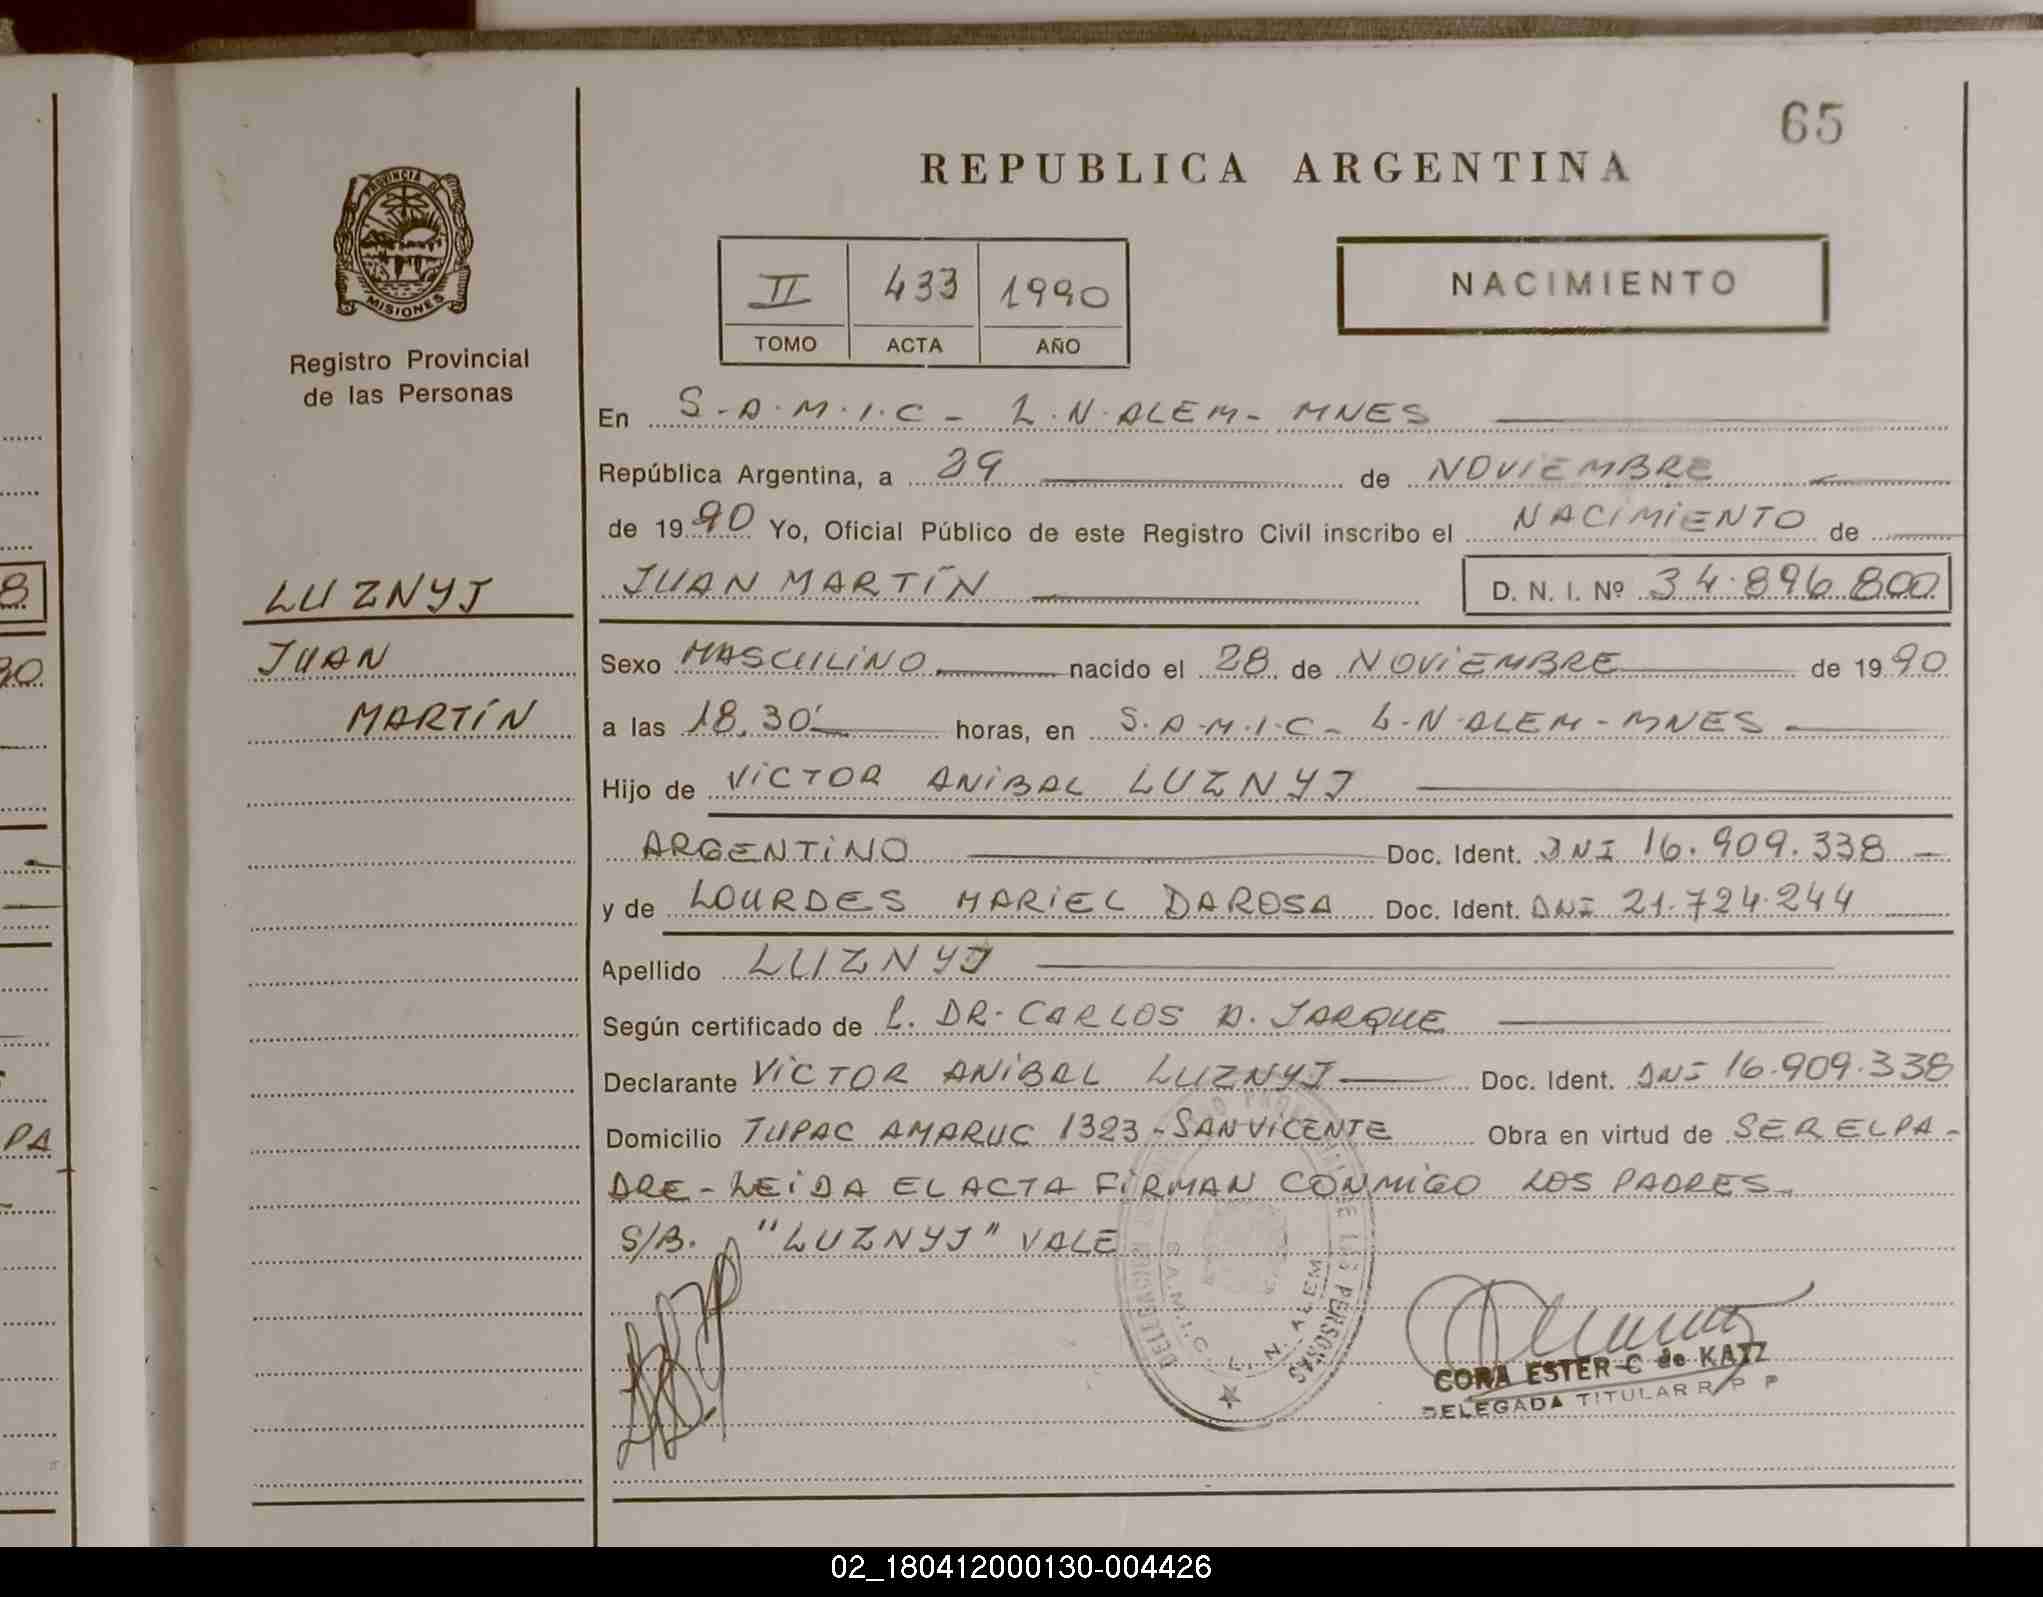 65
REPUBLICA ARGENTINA
PROVINCIA DE
MISIONES
Registro Provincial
de las Personas
II 433 1990
TOMO ACTA AÑO
NACIMIENTO
En S.A.M.I.C - L.N.ALEM - MNES
República Argentina, a 29 de NOVIEMBRE
de 1990 Yo, Oficial Público de este Registro Civil inscribo el NACIMIENTO de
JUAN MARTÍN D. N. I. Nº 34.896.800
LUZNYJ
JUAN
MARTÍN
Sexo MASCULINO nacido el 28 de NOVIEMBRE de 1990
a las 18,30' horas, en S.A.M.I.C - L.N.ALEM - MNES
Hijo de VICTOR ANIBAL LUZNYJ
ARGENTINO Doc. Ident. DNI 16.909.338
y de LOURDES MARIEL DAROSA Doc. Ident. DNI 21.724.244
Apellido LUZNYJ
Según certificado de l. DR. CARLOS A. JARQUE
Declarante VICTOR ANIBAL LUZNYJ Doc. Ident. DNI 16.909.338
Domicilio TUPAC AMARUC 1323 - SAN VICENTE Obra en virtud de SER EL PA-
DRE - LEIDA EL ACTA FIRMAN CONMIGO LOS PADRES.
S/B. "LUZNYJ" VALE
DE LAS PERSONAS
S.A.M.I.C. L. N. ALEM
CORA ESTER C de KATZ
DELEGADA TITULAR R P P
8
90
PA
02_180412000130-004426